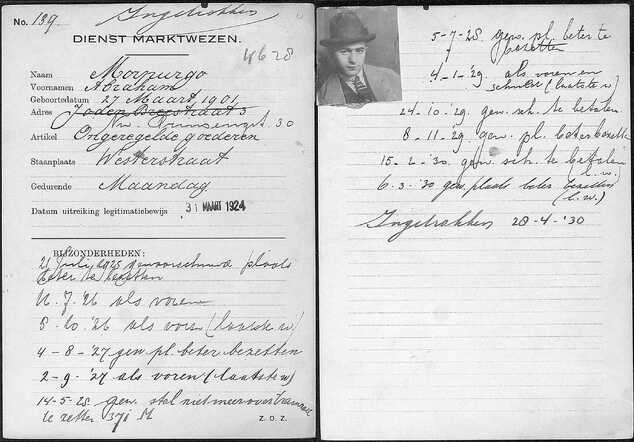 No. 139. Ingetrokken
DIENST MARKTWEZEN.
4628
Naam Morpurgo
Voornamen Abraham
Geboortedatum 27 Maart 1901
Adres Joden Breestraat 3
N. Prinsengrt. 30
Artikel Ongeregelde goederen
Staanplaats Westerstraat
Gedurende Maandag
Datum uitreiking legitimatiebewijs 31 MAART 1924
BIJZONDERHEDEN:
21 Juli 1925 gewaarschuwd plaats
beter te bezetten
12.7.26 als voren
8.10.'26 als voren (laatste w)
4-8-'27 gew. pl. beter bezetten
2-9-'27 als voren (laatste w)
14-5-28 gew. stal niet meer over
te zetten 371 M
Z.O.Z.
5-7-28 gew. pl. beter te
bezetten
4-1-'29 als voren en
(laatste w)
24-10-'29 gew. sch. te betalen
8-11-29 gew. pl. beter bezetten
15-2-'30 gew. sch. te betalen
(l.w.)
6-3-'30 gew. plaats beter bezetten
(l.w.)
Ingetrokken 28-4-'30